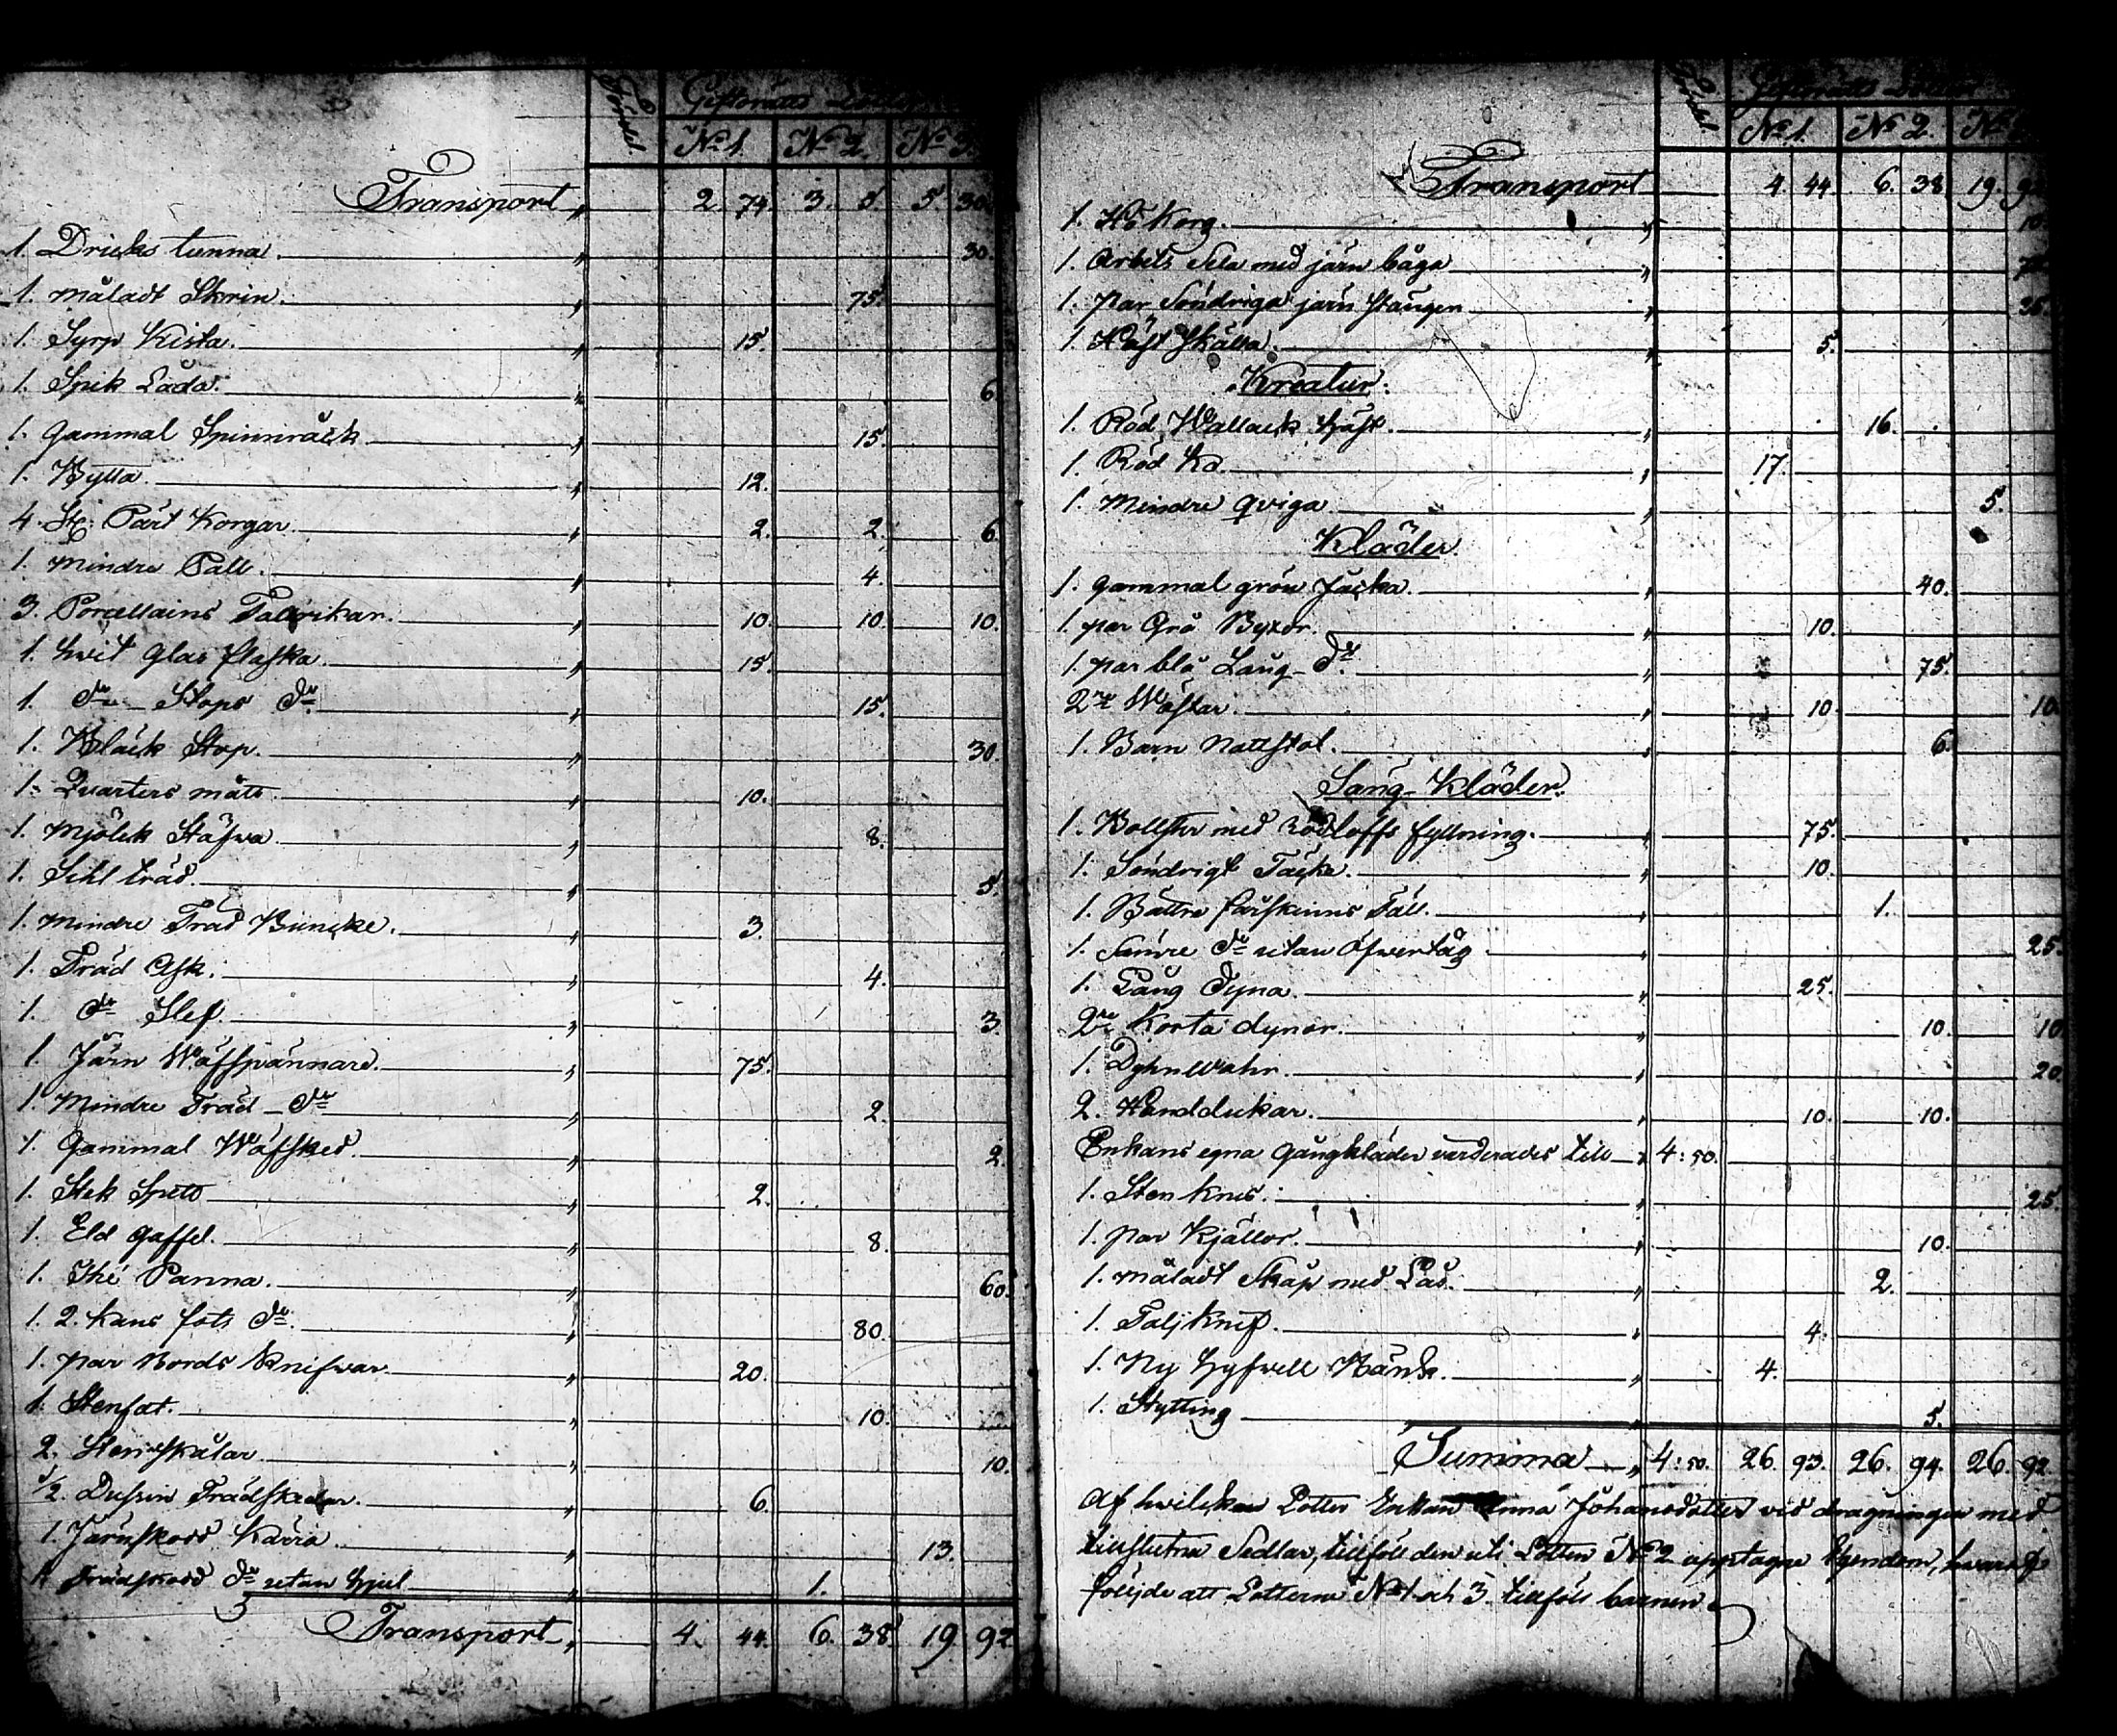 Fördel. Giftorätts Lotter
No 1. No 2. No 3.
Transport " 2 74. 3. 5. 5. 30.
1. Dricks tunna. " 30.
1. måladt Skrin. " 75.
1. Syrp Kista. " 15.
1. Spik Låda. " 6.
1. gammal Spinnråck " 15.
1. Bytta. " 12.
4. St. Pärt Korgar. " 2. 2. 6.
1. mindre Pall. " 4.
3. Porcellains Tallrikar. " 10. 10. 10.
1. hvit glas flaska. " 15.
1. do Stops do " 15.
1. Bläck Stop. " 30.
1. Quarters mått. " 10.
1. Mjölck Stäfva. " 8.
1. Sihl träd. " 5.
1. Mindre Träd Buncke. " 3.
1. Träd Ask. " 4.
1. do Slef. " 3.
1. Järn Wäfspännare. " 75.
1. Mindre Träd do " 2.
1. Gammal Wäfsked. " 2.
1. Stek Spett " 2.
1. Eld gaffel. " 8.
1. Thé Panna. " 60.
1. 2. kans fots do. " 80.
1. par Bords Knifvar. " 20.
1. Stenfat. " 10.
2. Stenskålar. " 10.
1/2. Dussin Trädskedar. " 6.
1. Järnskodd Kärra. " 13.
1. Trädskodd do utan hjul " 1.
Transport " 4. 44. 6. 38. 19. 92
Giftorätts Lotter
No 1. No 2. No
Transport 4 44. 6. 38. 19.
1. Hö Korg. " 10.
1. Arbets Sela med järn båga "
1. par Söndriga järn Stänger "
1. Häst Skälla. " 5.
Kreatur.
1. Röd Wallack häst. " 16.
1. Röd Ko. " 17.
1. Mindre qviga " 5.
Kläder.
1. gammal grön Jacka. " 40.
1. par Grå Byxor. " 10.
1. par blå Lång do. " 75.
2ne Wästar. " 10. 10.
1. Barn nattstol. " 6.
Säng-Kläder.
1. Bollster med fyllning. " 75.
1. Söndrigt Täcke. " 10.
1. Bättre fårskinns Fäll. " 1.
1. Sämre do utan öfvertåg " 25.
1. Lång Dyna. " 25.
2ne Korta dynor. " 10. 10
1. Dyhnwahr. " 20.
2. Handdukar. " 10. 10.
Enkans egna gångkläder värderades till " 4:50.
1. Sten krus. " 25.
1. par Kjällor. " 10.
1. måladt Skåp med Lås. " 2.
1. Täljknif. " 4.
1. Ny hyfvell Bänk. " 4.
1. Stytting " 5.
Summa " 4:50. 26. 93. 26. 94. 26. 92
Af hvilcka Lotter Enkan Anna Johansdotter vid dragningen med
tillslutna Sedlar, tillföll den uti Lotten No 2 upptagne Egendom, hvaraf
följde att Lotterna No 1 och 3. tillföll barnen.